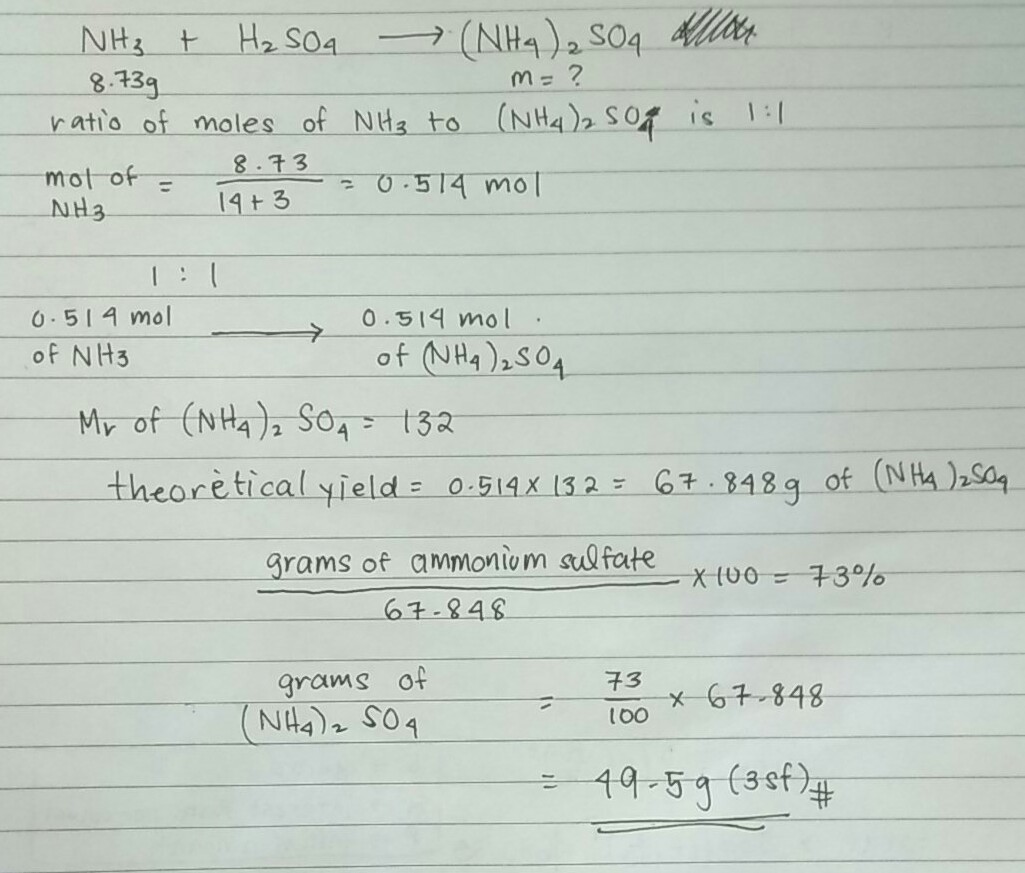 NH3 + H2SO4 → (NH4)2SO4
8.73g m = ?
ratio of moles of NH3 to (NH4)2SO4 is 1:1
mol of NH3 = 8.73 / 14+3 = 0.514 mol
1 : 1
0.514 mol of NH3 → 0.514 mol of (NH4)2SO4
Mr of (NH4)2SO4 = 132
theoretical yield = 0.514 x 132 = 67.848g of (NH4)2SO4
grams of ammonium sulfate / 67.848 x 100 = 73%
grams of (NH4)2SO4 = 73/100 x 67.848
= 49.5g (3sf)#